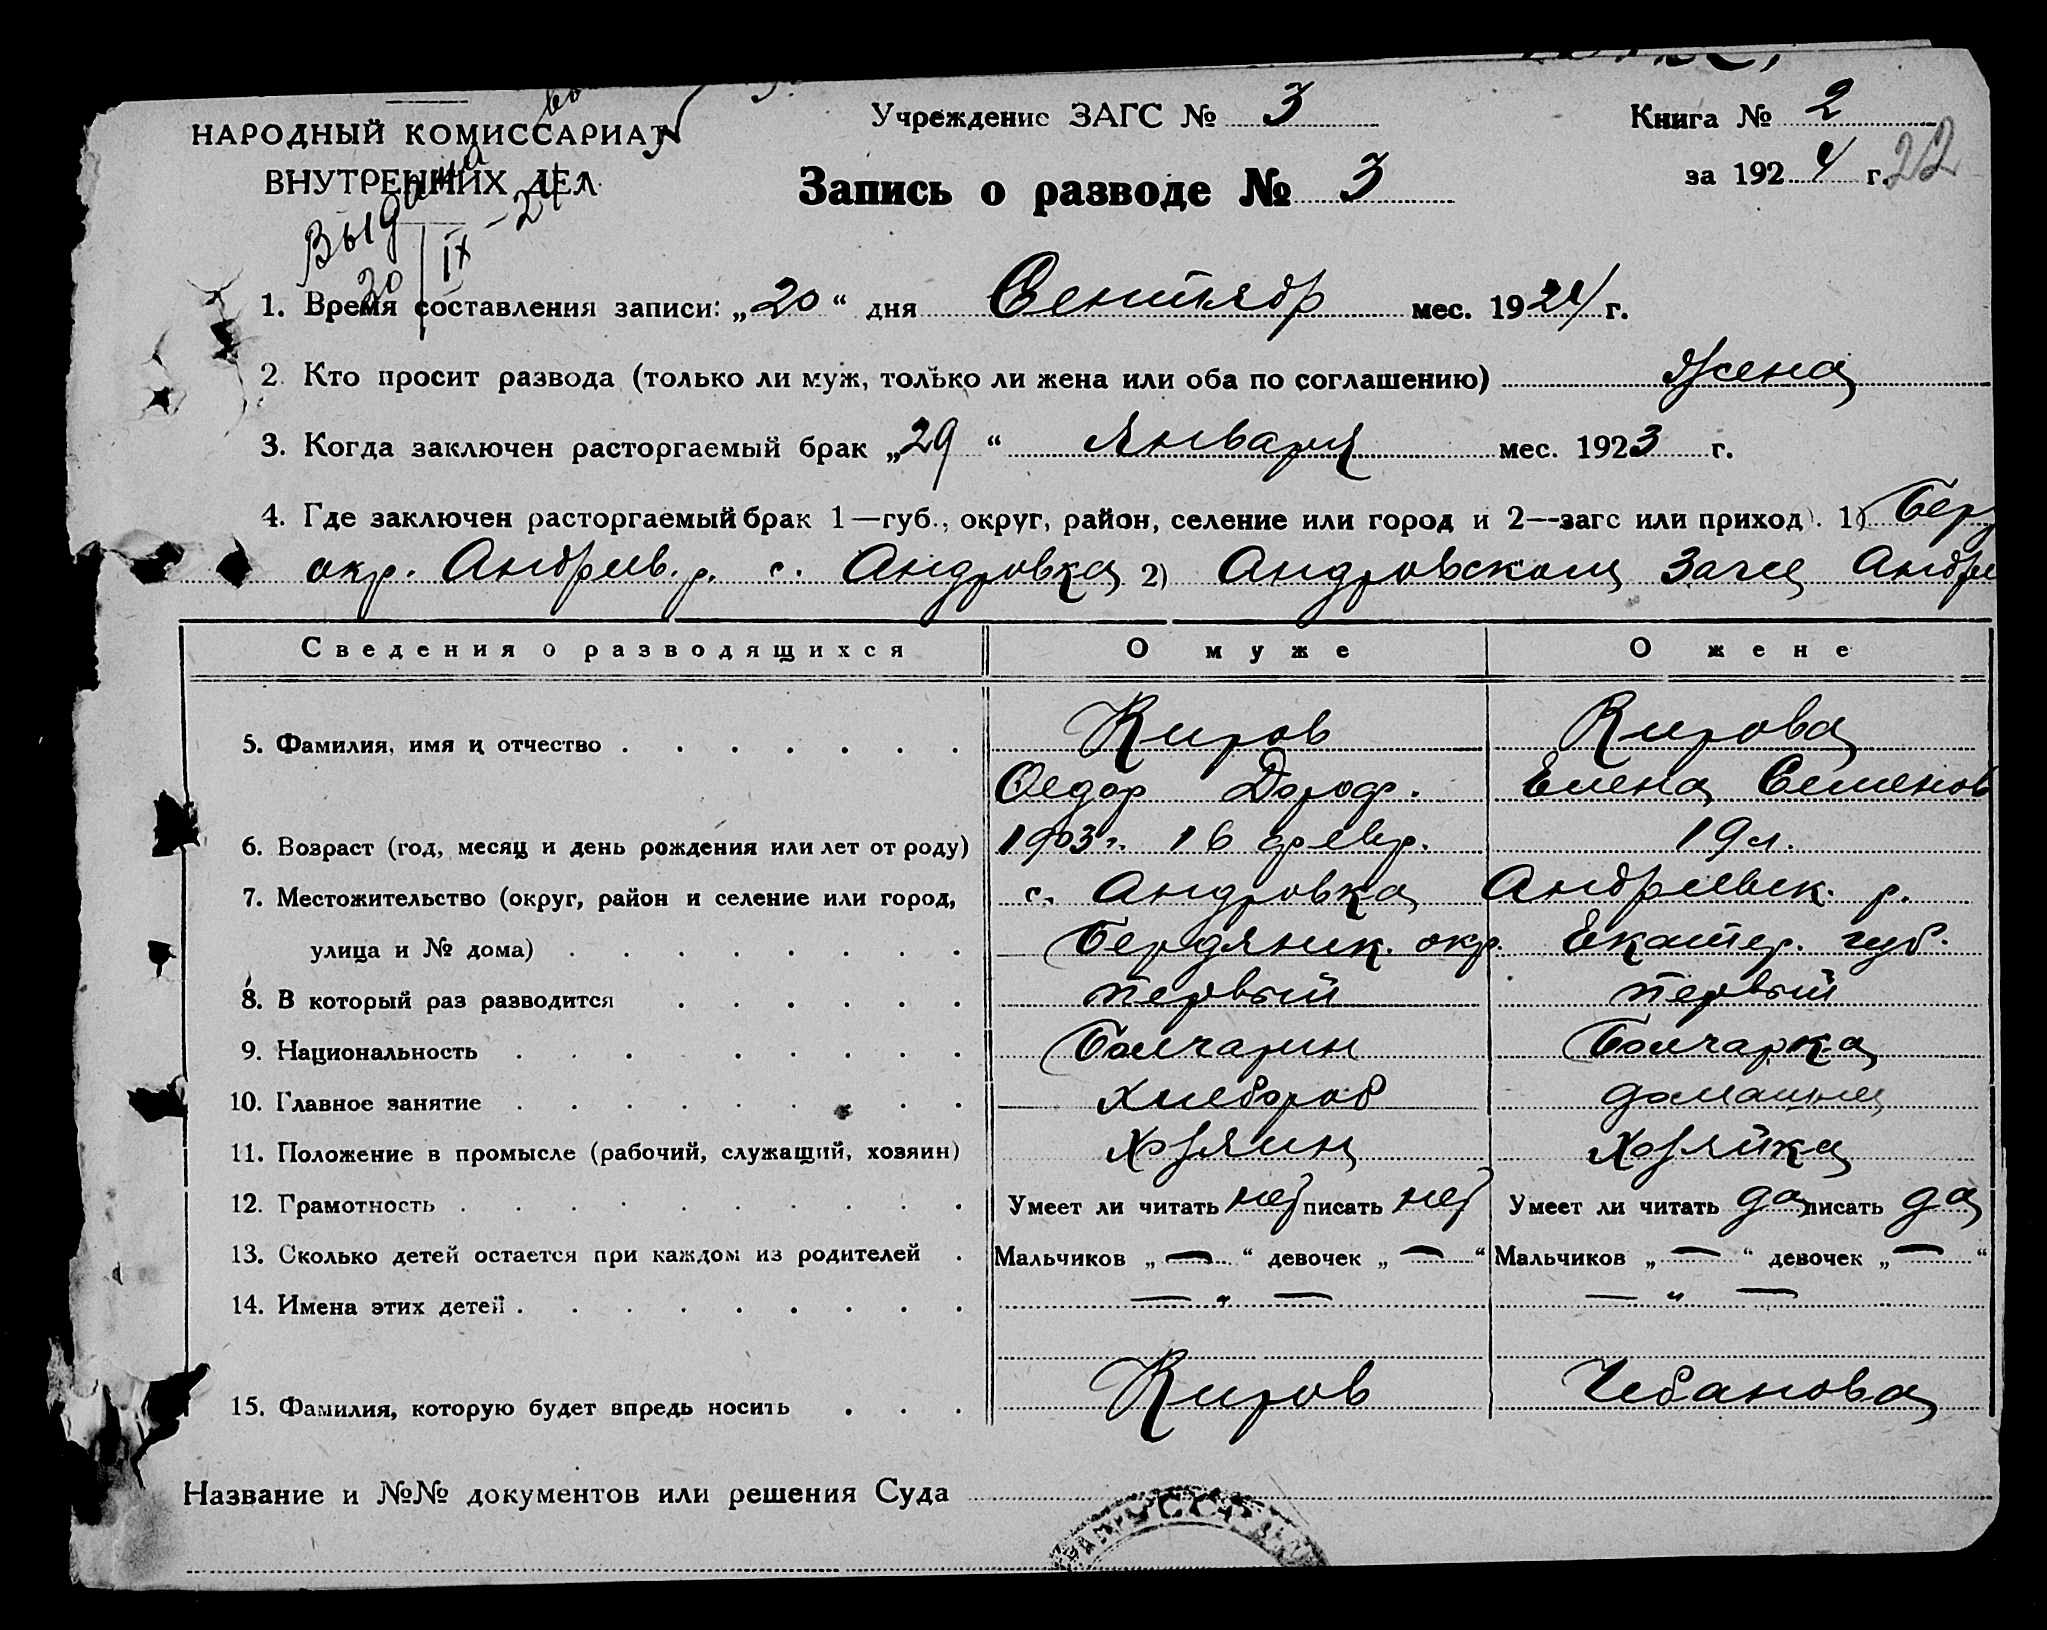 Учреждение ЗАГС № 3
Книга № 2
НАРОДНЫЙ КОМИССАРИАТ
ВНУТРЕННИХ ДЕЛ
за 1924 г. 22
Запись о разводе № 3
Выдана
30 | IX - 24
1. Время составления записи: „20“ дня Сентябр мес. 1924 г.
2. Кто просит развода (только ли муж, только ли жена или оба по соглашению) Жена
3. Когда заключен расторгаемый брак „29“ Января мес. 1923 г.
4. Где заключен расторгаемый брак 1—губ., округ, район, селение или город и 2—загс или приход). 1) Бер
окр. Андреев. р. с. Андровка 2) Андровском Загсе Андре
Сведения о разводящихся О муже О жене
5. Фамилия, имя и отчество Киров Кирова
Федор Дороф. Елена Семенов
6. Возраст (год, месяц и день рождения или лет от роду) 1903 г. 16 февр. 19 л.
7. Местожительство (округ, район и селение или город, с. Андровка Андреевск. р.
улица и № дома) Бердянск. окр. Екатер. губ.
8. В который раз разводится первый первый
9. Национальность Болгарин Болгарка
10. Главное занятие хлебороб домашняя
11. Положение в промысле (рабочий, служащий, хозяин) Хозяин Хозяйка
12. Грамотность Умеет ли читать нет писать нет Умеет ли читать да писать да
13. Сколько детей остается при каждом из родителей Мальчиков „—“ девочек „—“ Мальчиков „—“ девочек „—“
14. Имена этих детей — „ — — „ —
15. Фамилия, которую будет впредь носить Киров Чебанова
Название и №№ документов или решения Суда
УССР